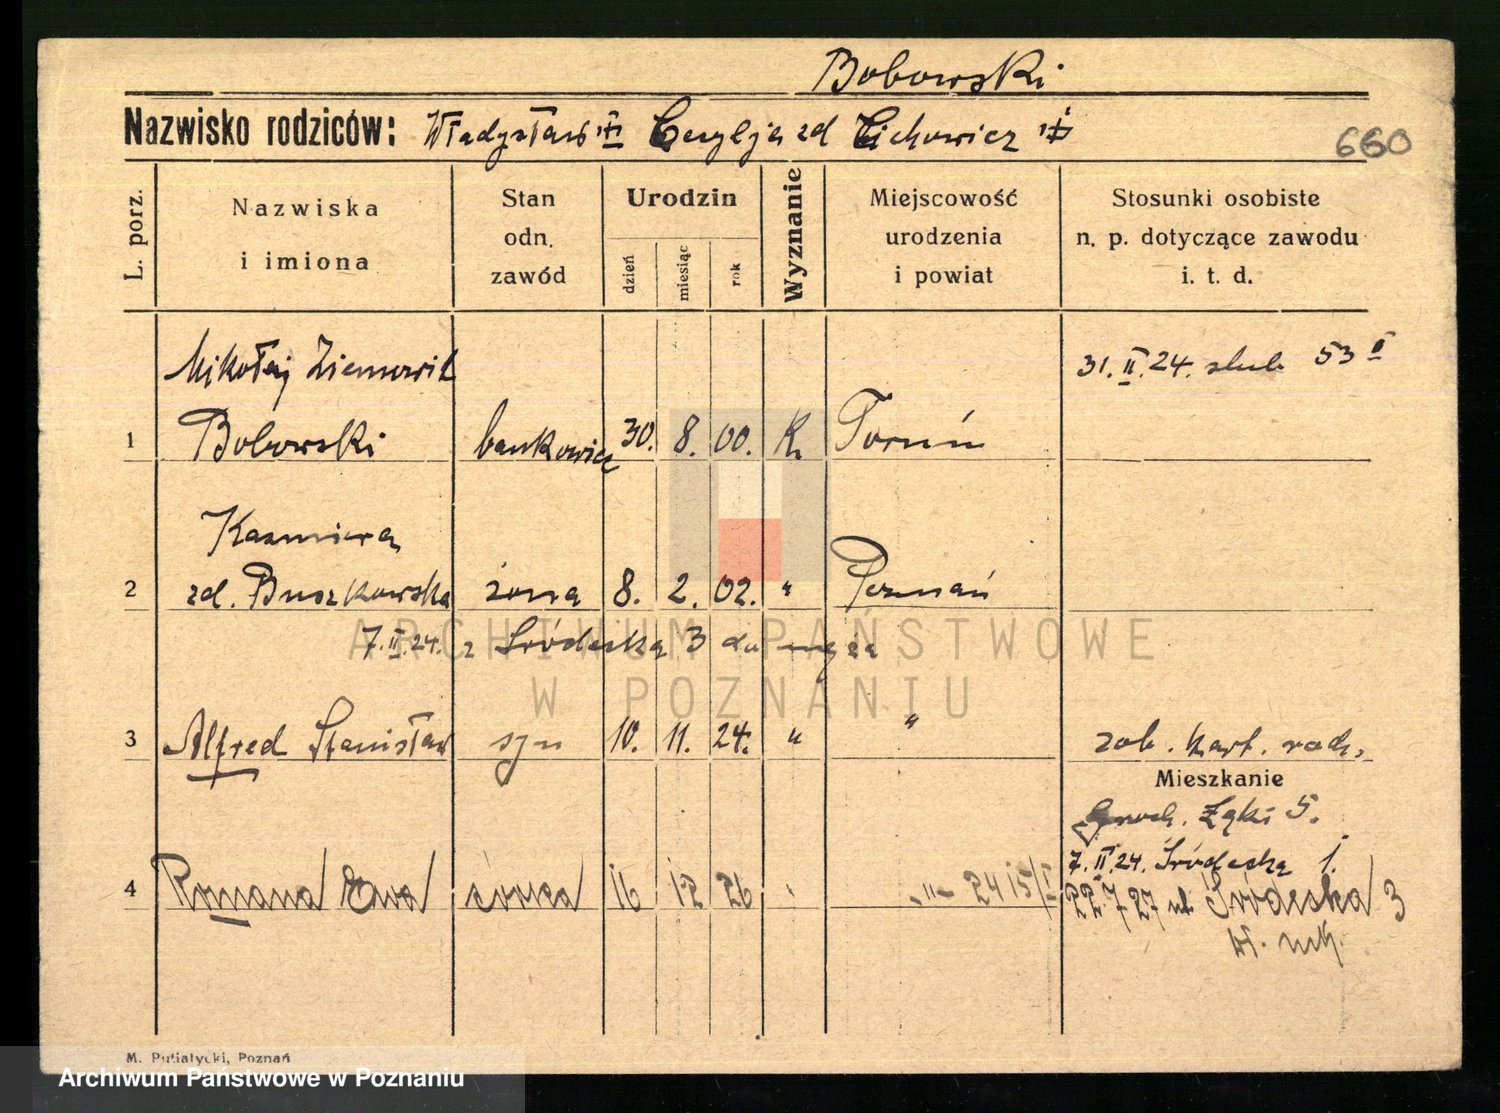 Bobowski
Nazwisko rodziców: Władysław zd Cichowicz
660
L. porz.
Nazwiska
i imiona
Stan
odn.
zawód
Urodzin
dzień
miesiąc
rok
Wyznanie
Miejscowość
urodzenia
i powiat
Stosunki osobiste
n. p. dotyczące zawodu
i. t. d.
Mikołaj Ziemowit
31. II. 24. slub 53 II
1 Bobowski bankowiec 30. 8. 00. K. Toruń
Kazmiera
2 zd. Buszkowska żona 8. 2. 02. " Poznań
7. II. 24. z Śródeska 3 do męża
3 Alfred Stanisław syn 10. 11. 24. " " zob. kart. rodz.
Mieszkanie
Groch. Łąki 5.
7. II. 24. Śródeska 1.
4 Romana Ewa córka 16 12 26 " -"- 24 15/I 22.7 27 ul. Śródeska 3
M. Putiatycki, Poznań
ARCHIWUM PAŃSTWOWE
W POZNANIU
Archiwum Państwowe w Poznaniu